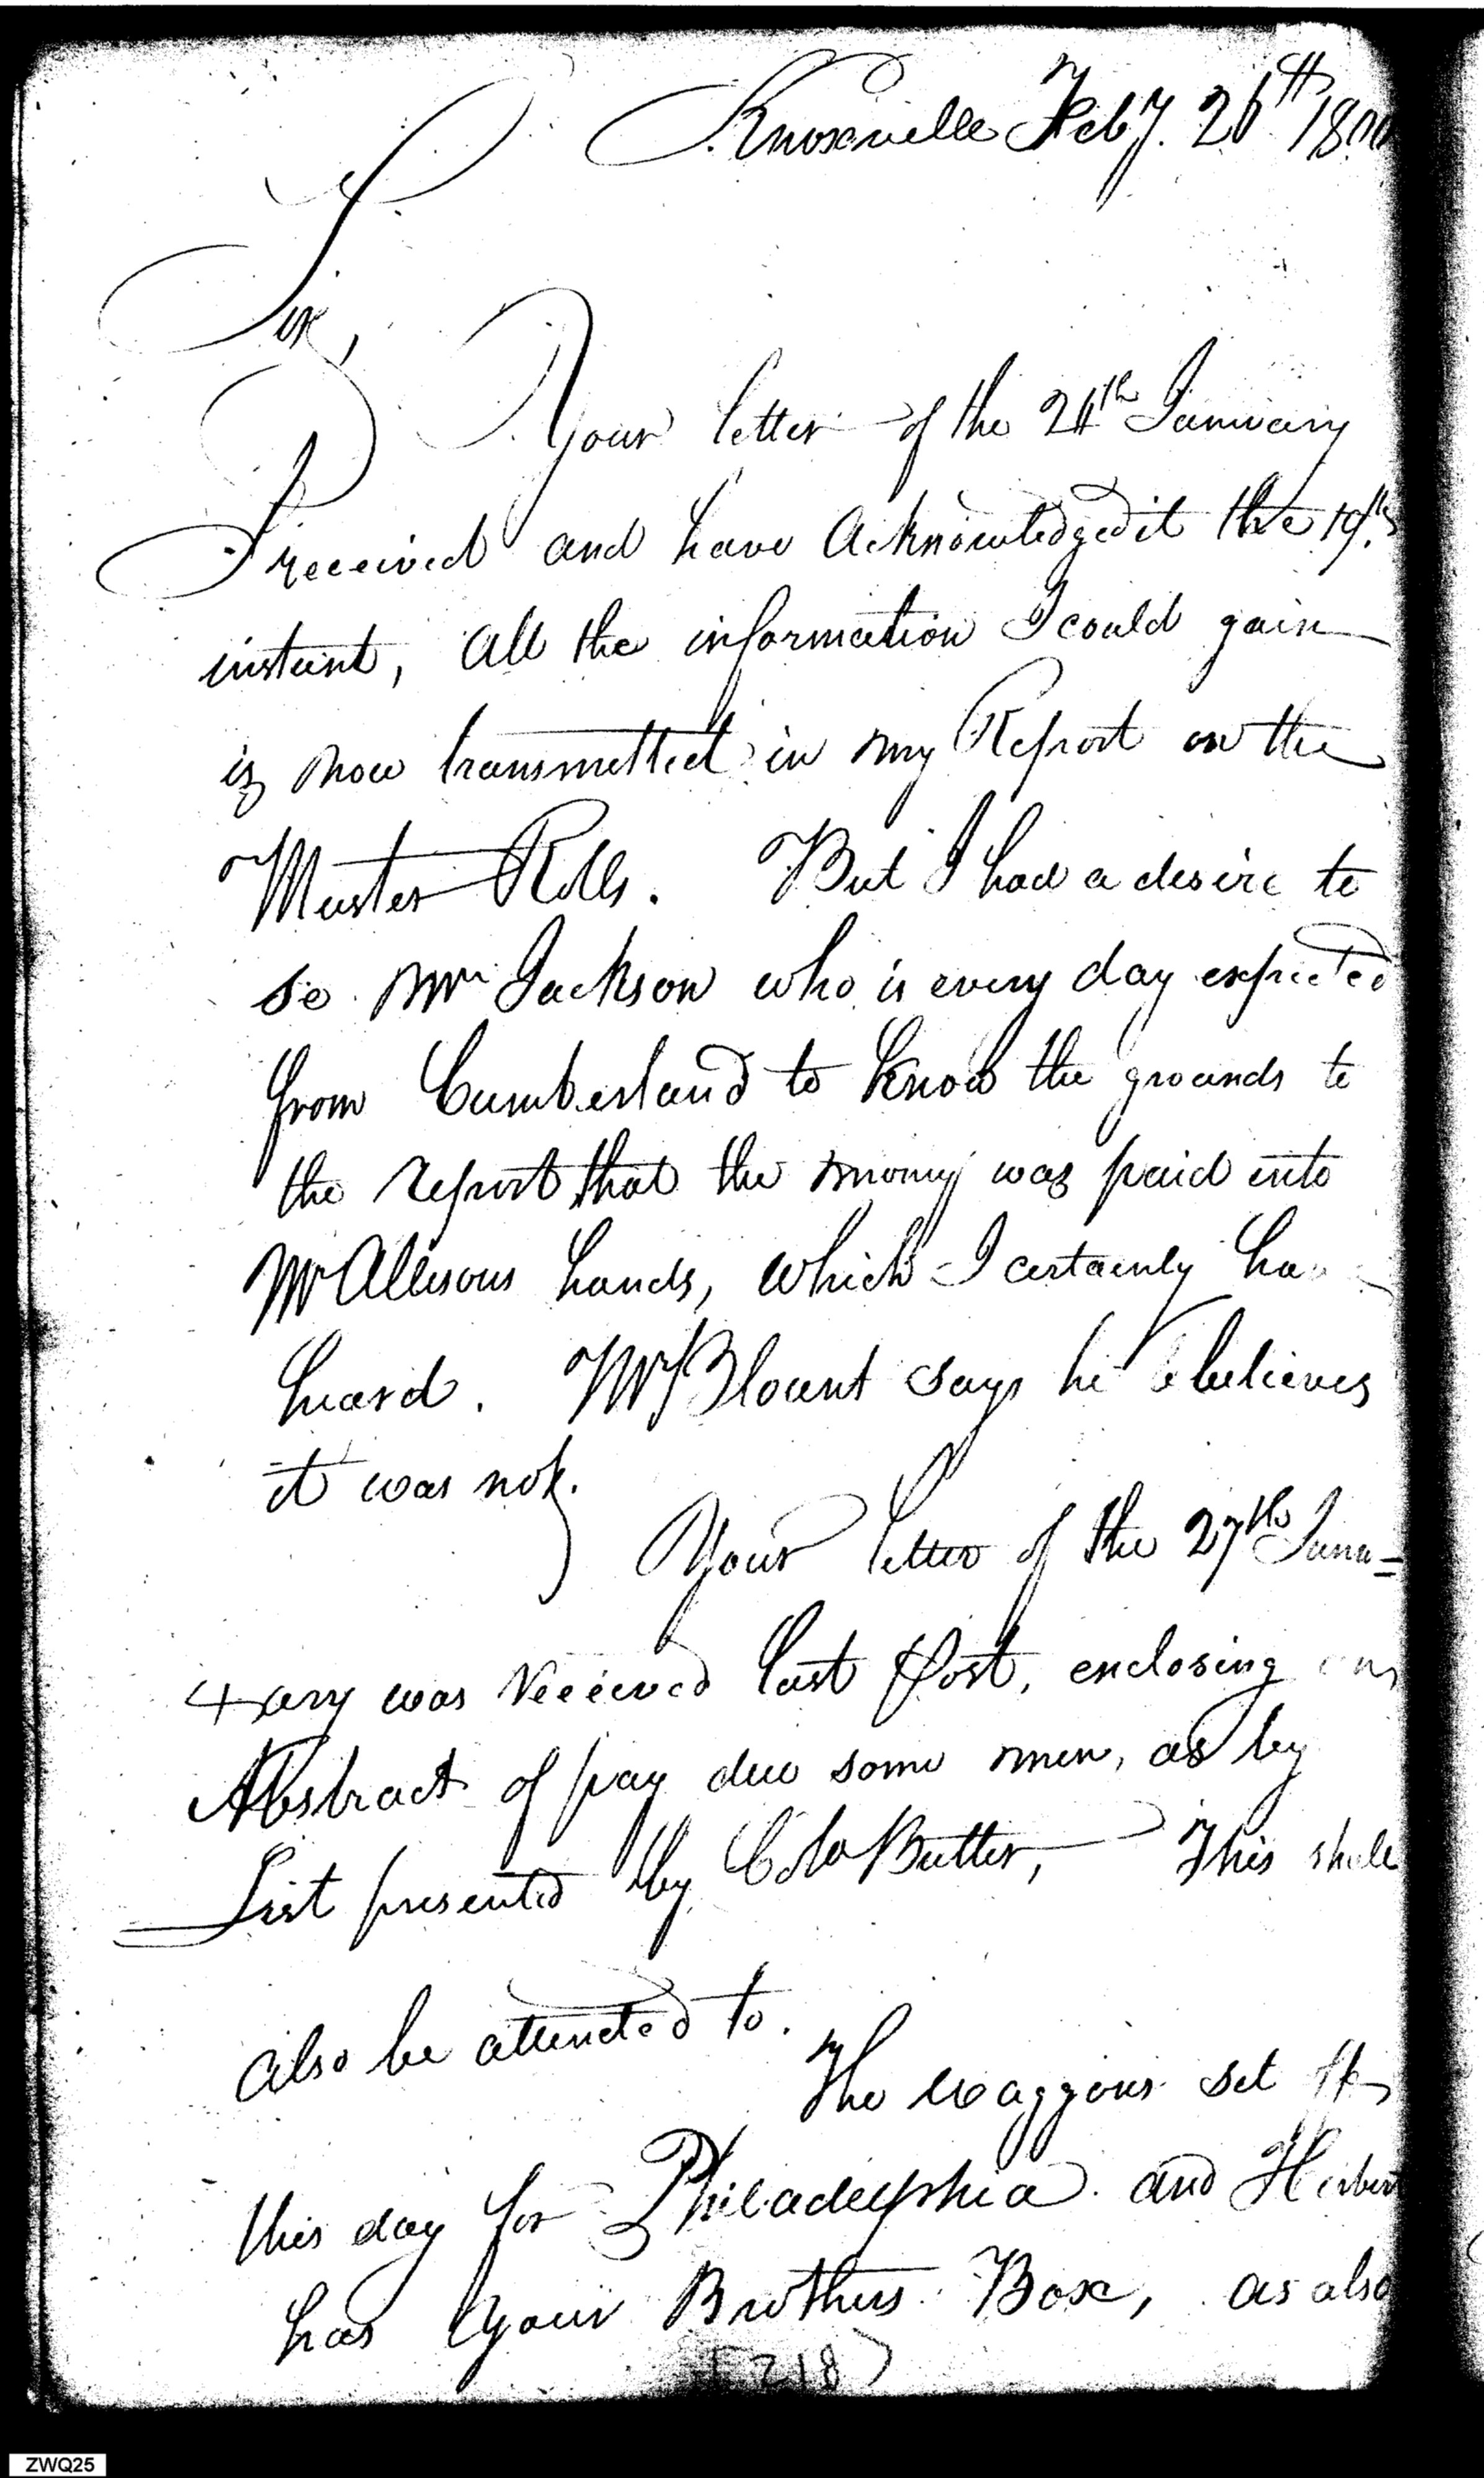 Knoxville Feby. 26th 1800
Sir,
Your letter of the 24th January
I received and have Acknowledged it the 19th
instant, All the information I could gain
is now transmitted in my Report on the
Muster Rolls. But I had a desire to
se Mr Jackson who is every day expected
from Cumberland to know the grounds to
the report that the money was paid into
Mr Allisons hands, which I certainly
heard. Mr Blount says he believes
it was not.
Your letter of the 27th Janu=
=ary was received last Post, enclosing an
Abstract of pay due some men, as by
List presented by Colo Butler, This shall
also be attended to.
The waggons set
this day for Philadelphia and Herbert
has your Brothers Box, as also
218
ZWQ25